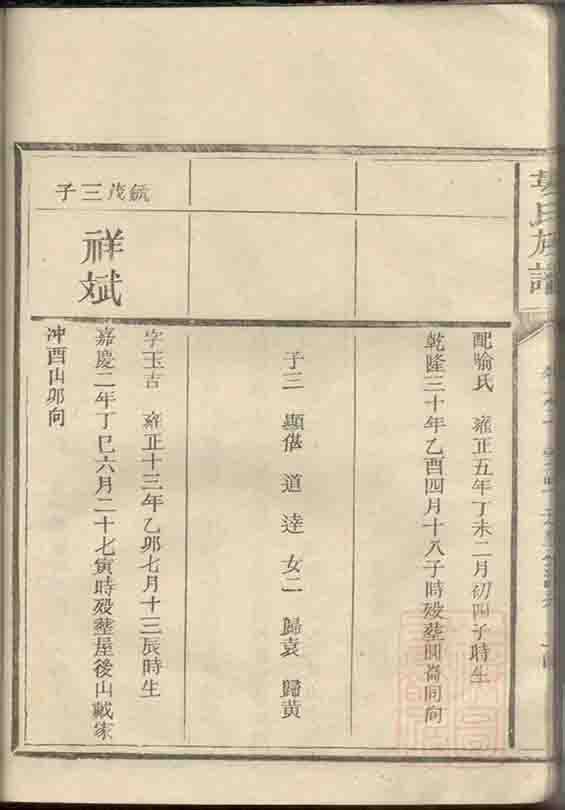 氏族譜
配喻氏 雍正五年丁未二月初四子時生
乾隆三十年乙酉四月十八子時歿塟同向
子三 顯 道 達 女二 歸袁 歸黃
毓茂三子
祥斌
字玉吉 雍正十三年乙卯七月十三辰時生
嘉慶二年丁巳六月二十七寅時歿塟屋後山戴家
冲酉山卯向